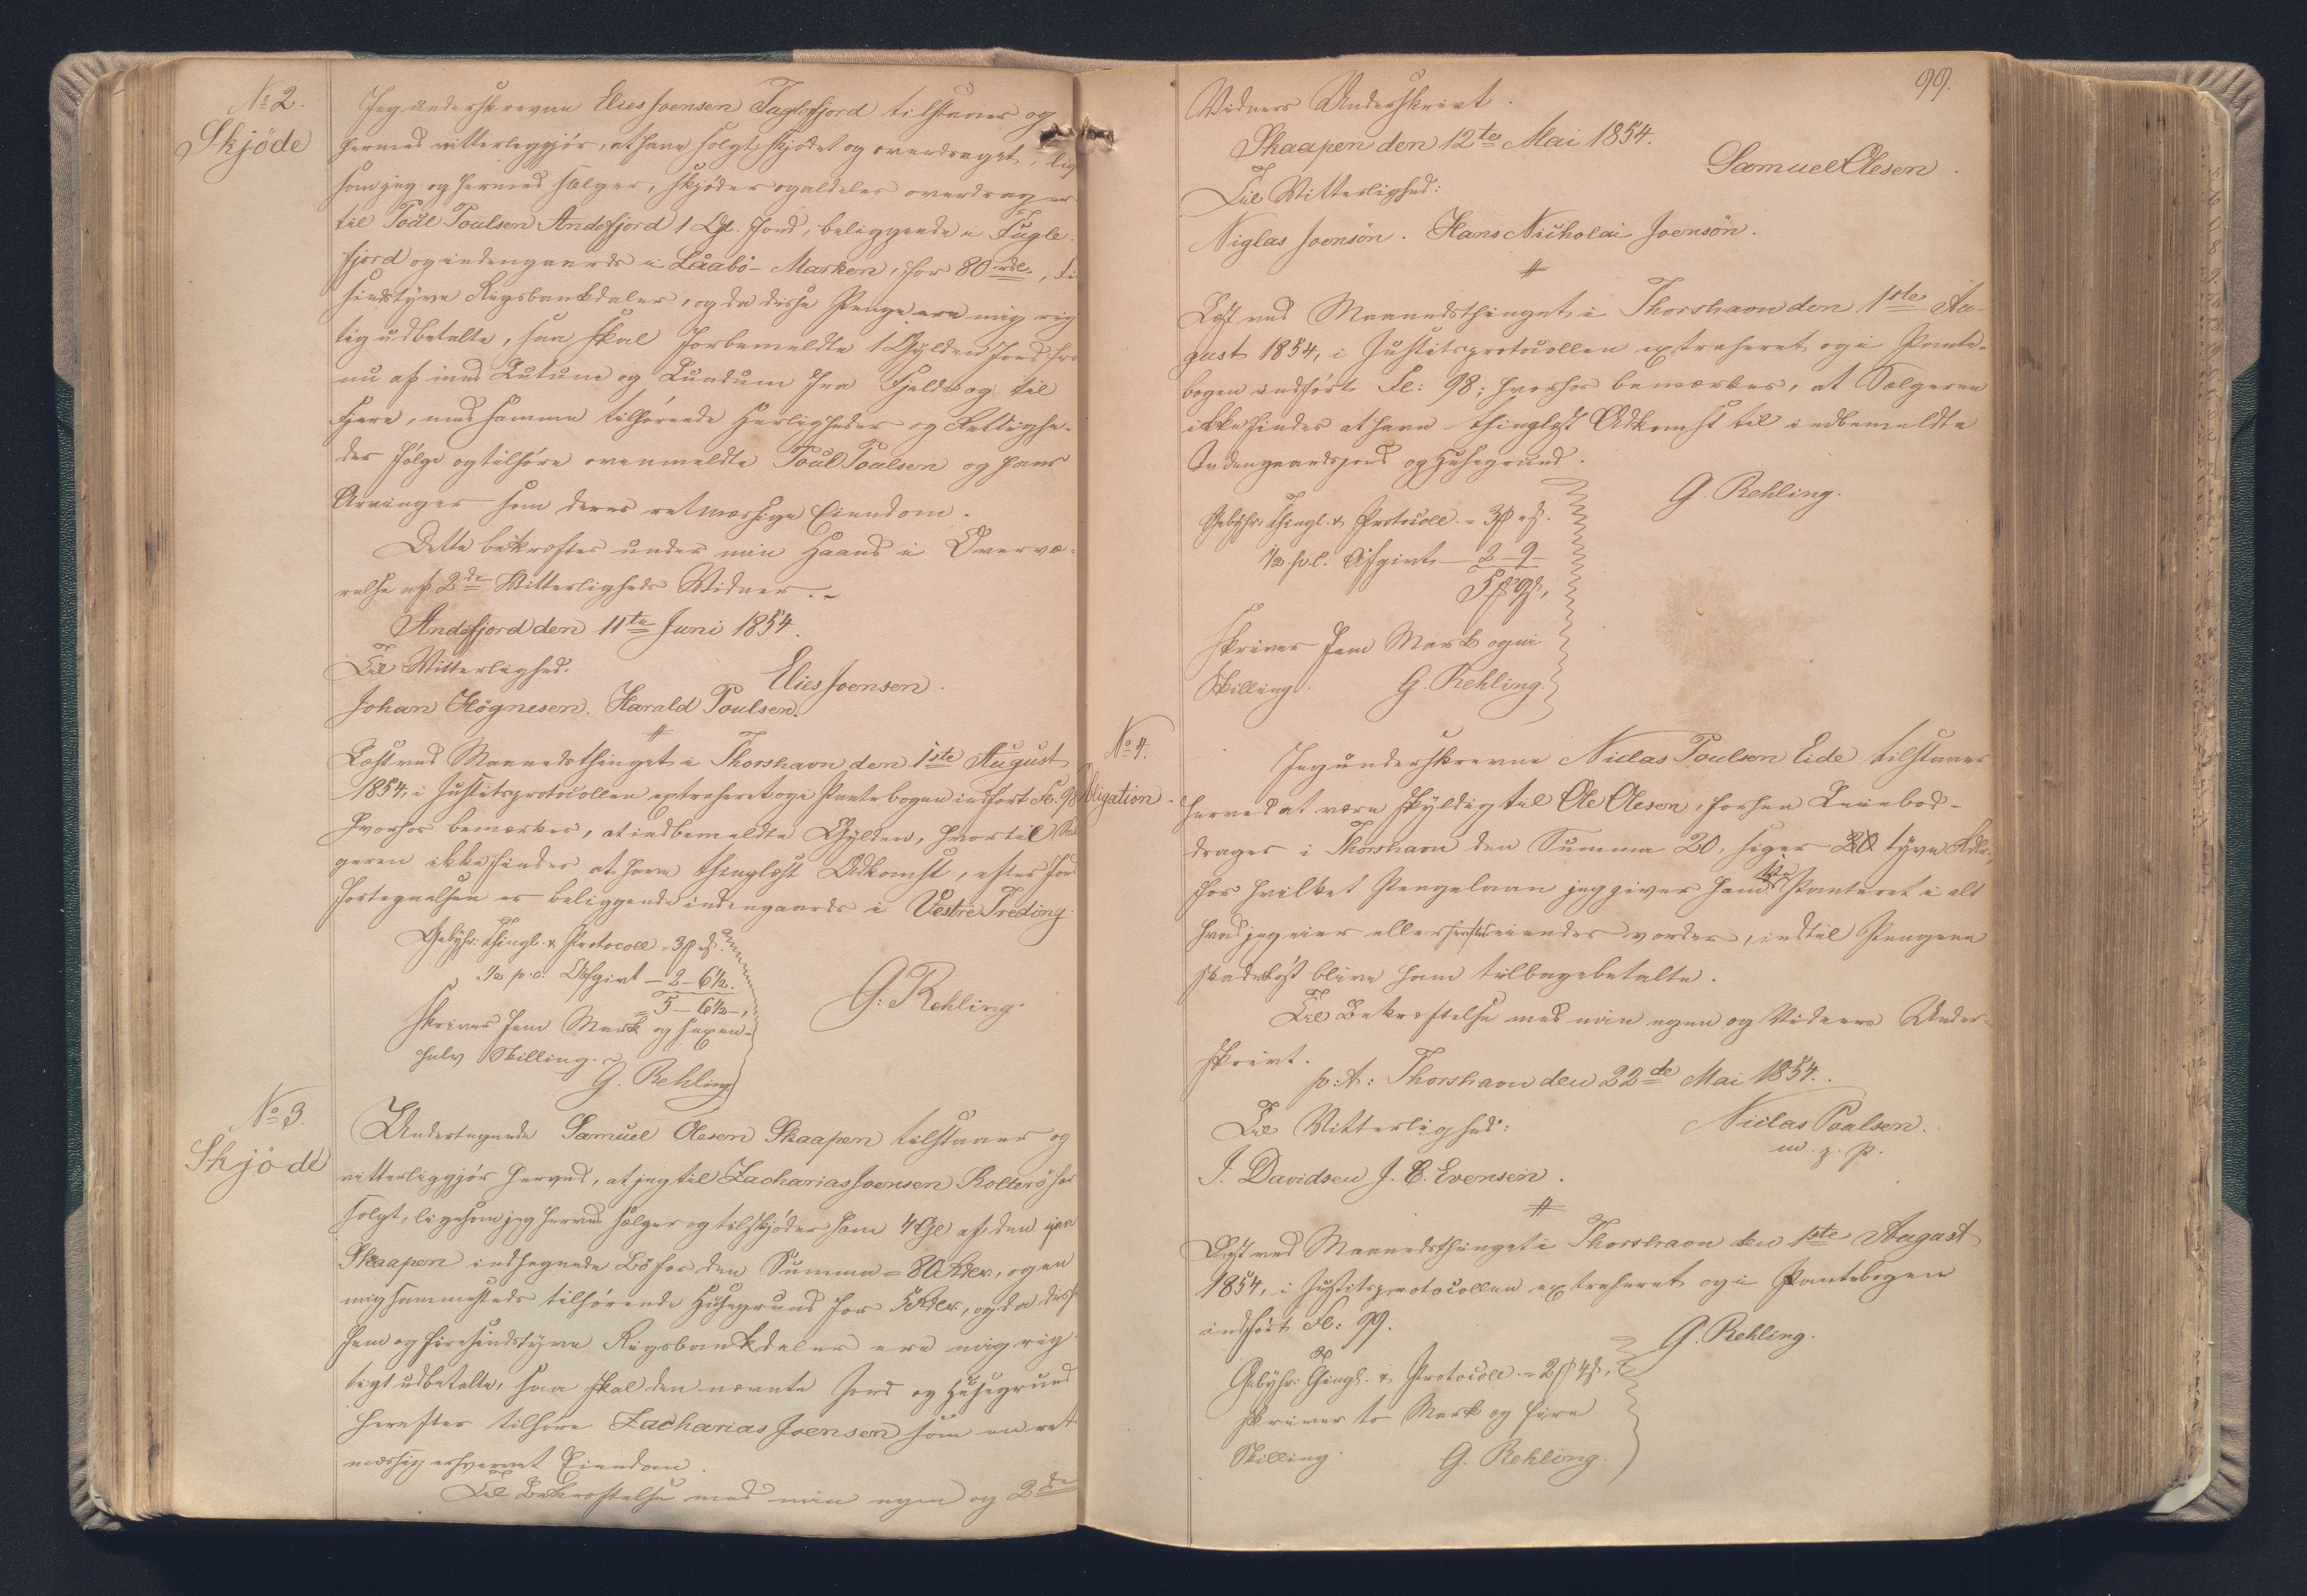 No 2.
Skjöde
Jeg underskrevne Elies Joensen Fuglefjord tilstaaer og
hermed vitterliggjör, at have solgt, skjödet og overdraget, lig
som jeg og hermed sælger, skjöder og aldeles overdrager
til Poul Poulsen Andefjord 1 Gl. Jord, beliggende i Fugle-
fjord og indengaards i Låabö-Marken, for 80 rdl., fi
sindstyve Rigsbankdaler, og da disse Penge ere mig rig
tig udbetalte, saa skal forbemeldte 1 Gylden Jord fra
nu af med Lutum og Lundum fra Fjeld og til
Fjære, med samme tilhörende Herligheder og Rettighe-
der fölge og tilhöre ovenmeldte Poul Poulsen og hans
Arvinger som deres retmæssige Eiendom.
Dette bekræftes under min Haand i Overvæ-
relse af 2de Vitterligheds Vidner.
Andefjord den 11te Juni 1854.
Til Vitterlighed:
Elies Joensen.
Johan Högnesen. Harald Poulsen.
#
Læst ved Maanedsthinget i Thorshavn den 1ste August
1854, i Justitsprotocollen extraheret og i Pantebogen indfört Fl. 98
hvorhos bemærkes, at indbemeldte Gylden, hvortil Sæl
geren ikke findes at have thinglæst Adkomst, efter Jord
fortegnelsen er beliggende indengaards i Vestre Treding.
Gebyhr: Thingl. & Protocoll. = 3 ß.
1/2 p.c. Afgivt — 2 – 6½.
= 5 – 6½ –,
skriver fem Mark og syven-
halv Skilling.
G. Rehling
G: Rehling.
No 3.
Skjöde
Undertegnede Samuel Olesen Skaapen tilstaaer og
vitterliggjör herved, at jeg til Zacharias Joensen Kolterö har
solgt, ligesom jeg herved sælger og tilskjöder ham 4 Gl af den i
Skaapen indhegnede Bö for den Summa = 80 Rdlr., og en
mig sammesteds tilhörende Huusegrund for 5 Rdlr., og da diss
fem og firesindstyve Rigsbankdaler ere mig rig
tigt udbetalte, saa skal den nævnte Jord og Huusegrund
herefter tilhöre Zacharias Joensen som en ret
mæssig erhvervet Eiendom.
Til Bekræftelse med min egen og 2de
99.
Vidners Underskrivt.
Skaapen den 12te Mai 1854.
Samuel Olesen.
Til Vitterlighed:
Niglas Joensön. Hans Nicholai Joensön.
#
Læst ved Maanedsthinget i Thorshavn den 1ste Au-
gust 1854, i Justitsprotocollen extraheret og i Pante-
bogen indfört Fl: 98; hvorhos bemærkes, at Sælgeren
ikke findes at have thinglyst Adkomst til indbemeldte
Indengaardsjord og Huusegrund.
G. Rehling.
Gebyhr: Thingl. & Protocoll. = 3 ß.
1/2 p.c. Afgivt – 2 – 9
5 9 ß,
skriver fem Mark og ni
Skilling.
G. Rehling.
No 4.
Obligation.
Jeg underskrevne Niclas Poulsen Eide tilstaaer
herved at være skyldig til Ole Olesen, forhen Leiebod-
drager i Thorshavn den Summa 20, siger 20 tyve Rdlr.,
for hvilket Pengelaan jeg giver ham 1ste Panteret i alt
hvad jeg eier eller herefter eiendes vorder, indtil Pengene
skadeslöst blive ham tilbagebetalte.
Til Bekræftelse med min egen og Vidners Under-
skrivt.
p:t: Thorshavn den 22de Mai 1854.
Til Vitterlighed:
Niclas Poulsen.
m. z. p.
J. Davidsen J. C. Evensen.
#
Læst ved Maanedsthinget i Thorshavn den 1ste August
1854, i Justitsprotocollen extraheret og i Pantebogen
indfört Fl: 99.
G. Rehling.
Gebyhr: Thingl. & Protocoll. = 2 4 ß,
skriver to Mark og fire
Skilling.
G. Rehling.